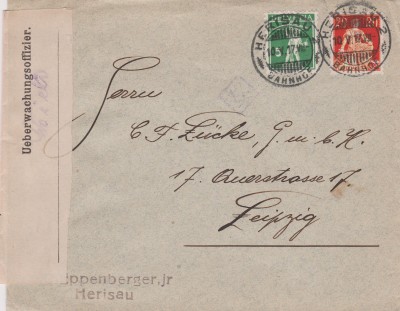 Ueberwachungsoffizier.
HERISAU
10.V.17
BAHNHOF
HERISAU 2
10.V.17
BAHNHOF
Herrn
C. F. Lücke, G.m.b.H.
17. Querstrasse 17.
Leipzig
ppenberger.jr
Herisau